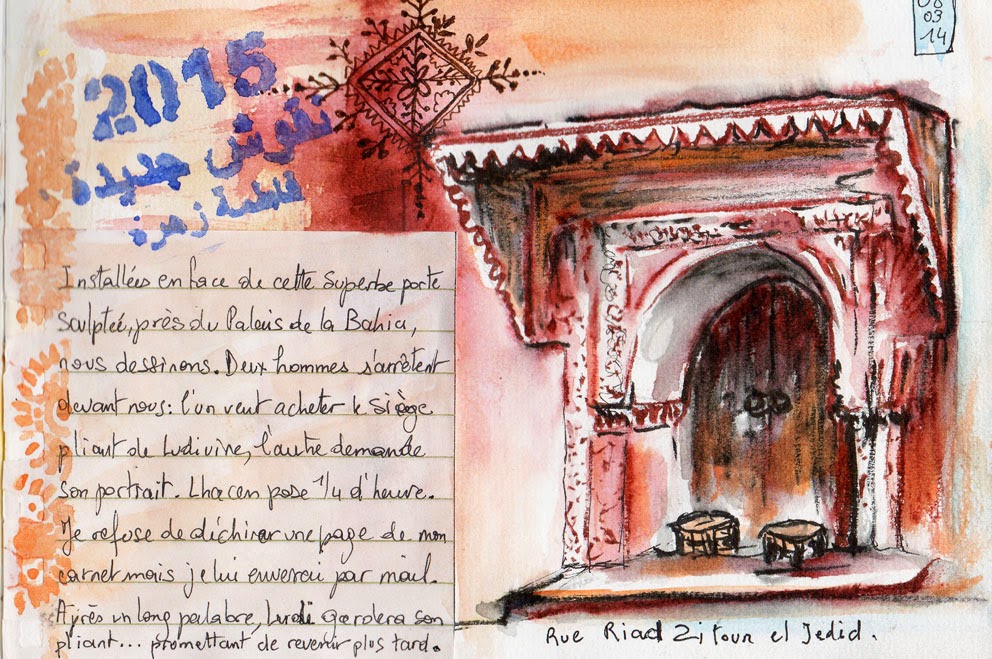 08
03
14
2015
نقوش جديدة
لسنة زهرة
Installées en face de cette superbe porte
sculptée, près du Palais de la Bahia,
nous dessinons. Deux hommes s'arrêtent
devant nous: l'un veut acheter le siège
pliant de Ludivine, l'autre demande
son portrait. Lhacen pose 1/4 d'heure.
Je refuse de déchirer une page de mon
carnet mais je lui enverrai par mail.
Après un long palabre, Ludi gardera son
pliant... promettant de revenir plus tard.
Rue Riad Zitoun el Jedid.